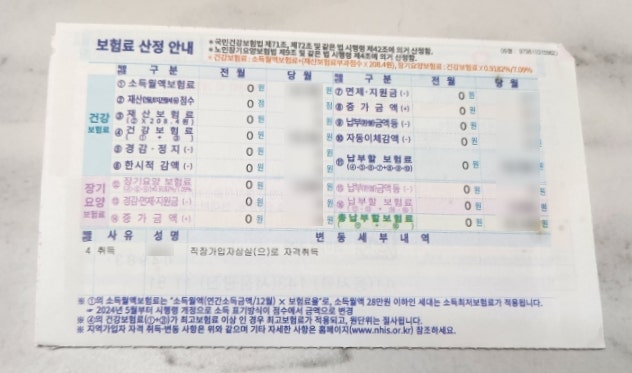 보험료 산정 안내
* 국민건강보험법 제71조, 제72조 및 같은 법 시행령 제42조에 의거 산정함.
* 노인장기요양보험법 제9조 및 같은 법 시행령 제4조에 의거 산정함.
* 건강보험료 : 소득월액보험료+(재산보험료부과점수 x 208.4원), 장기요양보험료 : 건강보험료 x 0.9182%/7.09%
구 분 전 월 당 월 구 분 전 월 당 월
건강
보험료
① 소득월액보험료 0 원 원
② 점수 0 점 점
③ 재 산 보 험 료 0 원 원
(② X 208.4원)
④ 건 강 보 험 료 0 원 원
(① + ③)
⑤ 경 감 · 정 지 (-) 0 원 원
⑥ 한시적 감액 (-) 0 원 원
⑦ 면제·지원금 (-) 0 원 원
⑧ 증 가 금 액 (+) 0 원 원
(-) 0 원 원
⑩ 자동이체감액 (-) 0 원 원
⑪ 납부할 보험료 0 원 원
(④-⑤-⑥-⑦+⑧-⑨-⑩)
장기
요양
보험료
⑫ 장기요양 보험료 0 원 원
⑬ 경감·면제·지원금 (-) 0 원 원
⑭ 증 가 금 액 (+) 0 원 원
(-) 0 원 원
납 부 할 보 험 료 0 원 원
총납부할보험료 0 원 원
사 유 성 명 변 동 세 부 내 역
4 취득 직장가입자상실(으)로 자격취득
※ ①의 소득월액보험료는 "소득월액(연간소득금액/12월) X 보험료율"로, 소득월액 28만원 이하인 세대는 소득최저보험료가 적용됩니다.
☞ 2024년 5월부터 시행령 개정으로 소득 표기방식이 점수에서 금액으로 변경
※ ④의 건강보험료(①+③)가 최고보험료 이상 인 경우 최고보험료가 적용되고, 원단위는 절사됩니다.
※ 지역가입자 자격 취득·변동 사항은 위와 같으며 기타 자세한 사항은 홈페이지(www.nhis.or.kr) 참조하세요.